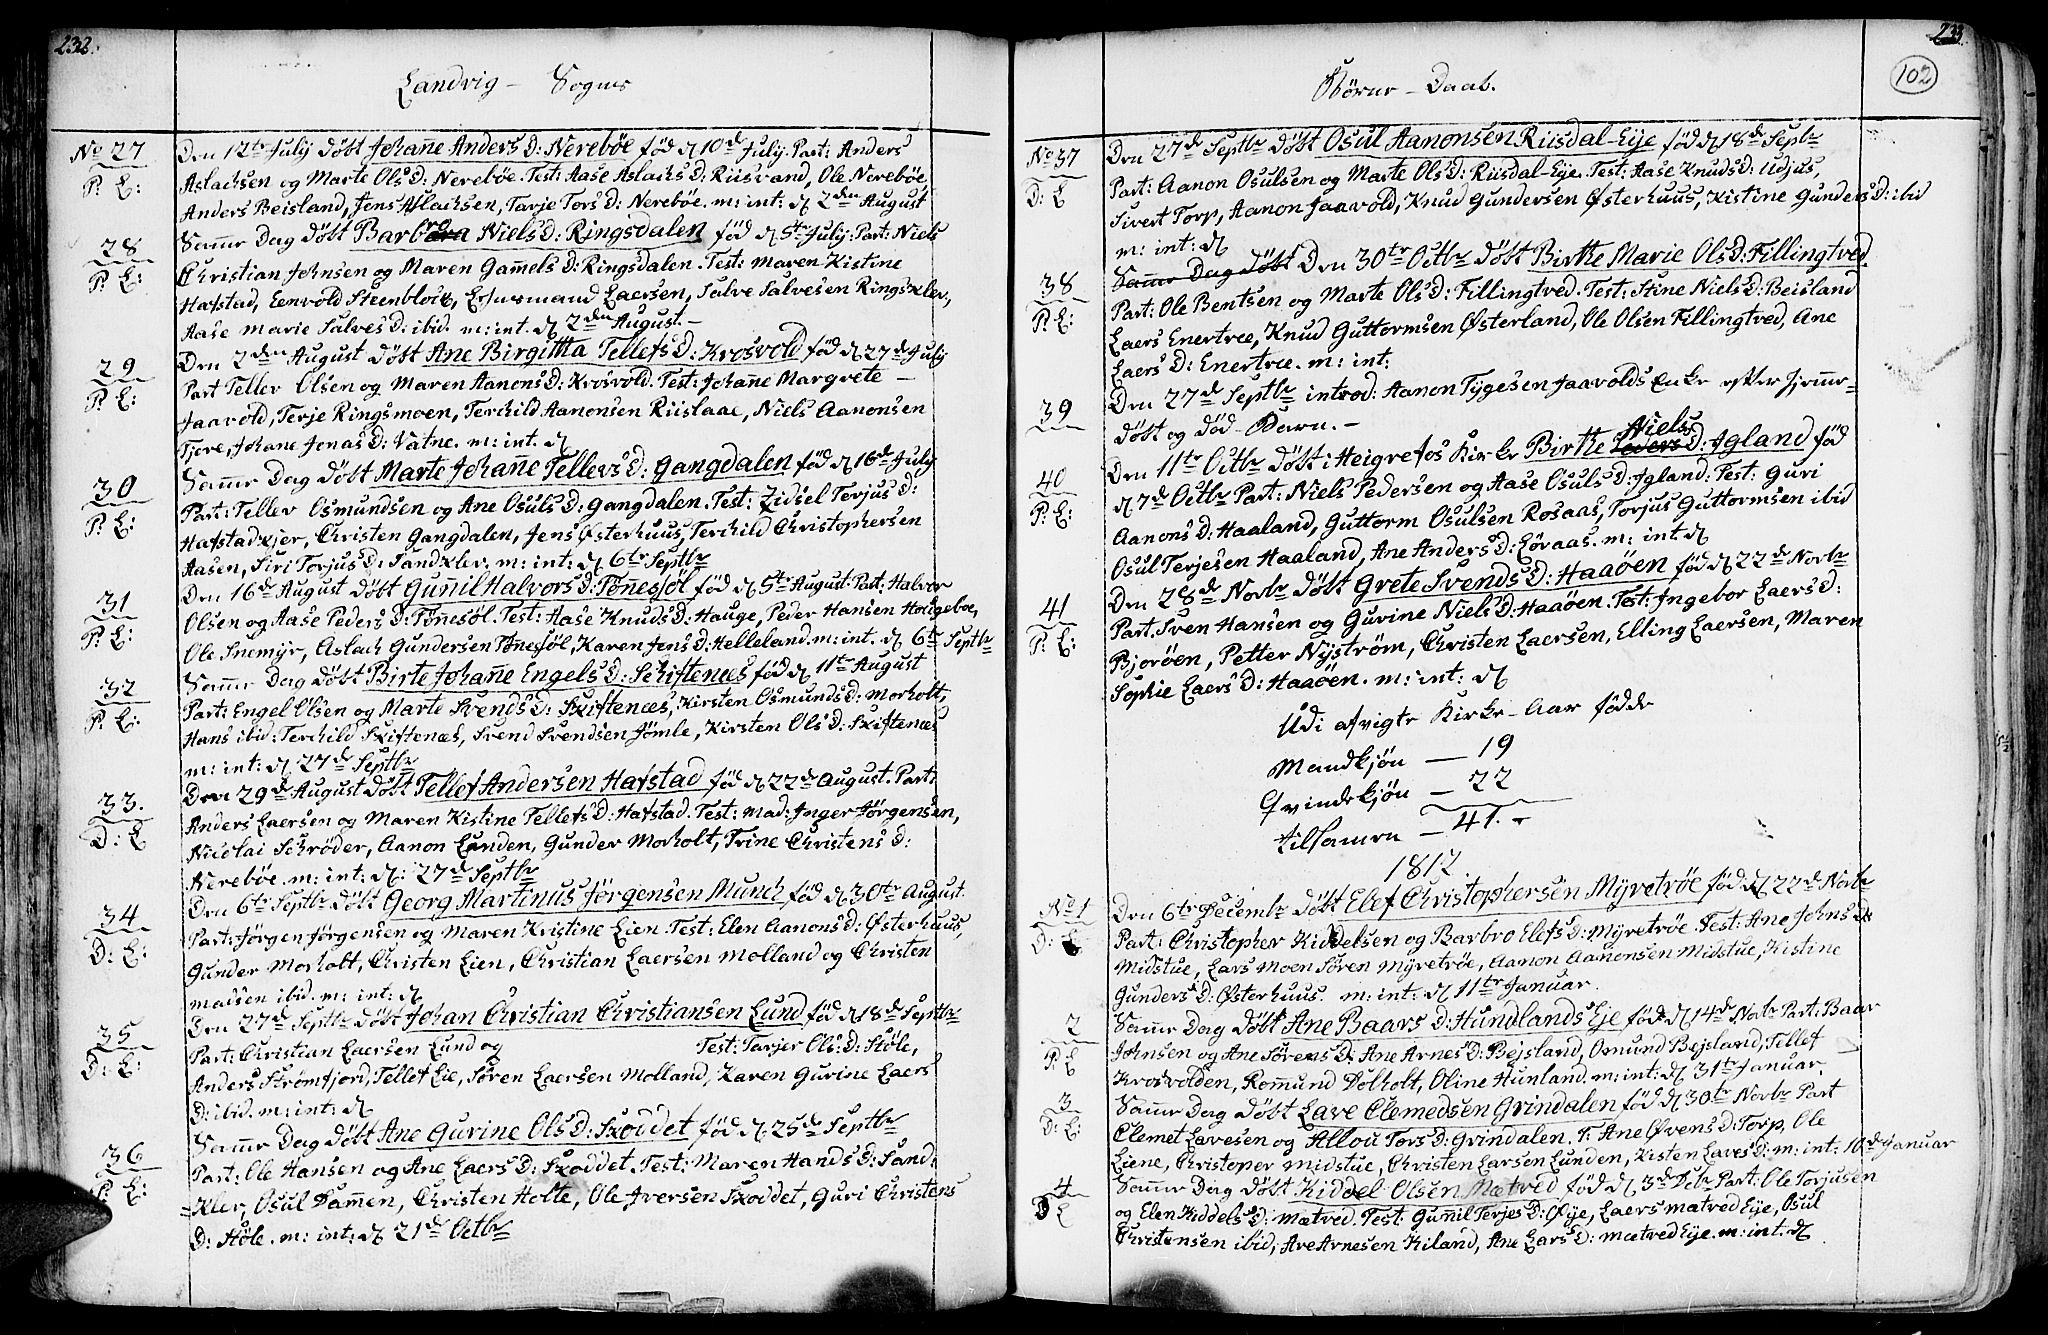 232.
Landvig - Sogns
No 27
Den 12te July døbt Johane Anders D: Nerebøe fød d 10de July. Part: Anders
P: L:
Aslachsen og Marte Ols D: Nerebøe. Test: Aase Aslachs D: Riisvand, Ole Nerebøe
Anders Beisland, Jens Aslachsen, Tarje Tors D: Nerebøe. m: int: d 2den August
28
Samme Dag døbt Barbroa Niels D: Ringsdalen fød d 5te July: Part: Niels
P: L:
Christian Johnsen og Maren Gamels D: Ringsdalen. Test: Maren Kistine
Hafstad, Eenvold Steenblock, Laersen, Salve Salvesen Ringsklev,
Aase Marie Salves D: ibid. m: int. d 2den August.-
29
Den 2den August døbt Ane Birgitta Tellefs D: Krosvold fød d 27de July
P: L:
Part Tellev Olsen og Maren Aanons D: Krosvold. Test: Johane Margrete -
Jaavold, Terje Ringsmoen, Terchild Aanonsen Riislaae, Niels Aanonsen
Tjore, Johane Jonas D: Vatne. m: int. d
30
Samme Dag døbt Marte Johane Tellevs D: Gangdalen fød d 16de July
P: L:
Part: Tellev Osmundsen og Ane Osuls D: Gangdalen. Test: Zidsel Terjus D:
Hafstadkjer, Christen Gangdalen, Jens Østerhuus, Terchild Christophersen
Aasen, Siri Torjus D: Sandklev. m: int: d 6te Septbr
31
Den 16de August døbt Gunil Halvors D: Tønesøl fød d 5te August: Part: Halvor
P: L:
Olsen og Aase Peders D: Tønesøl. Test: Aase Knuds D: Hauge, Peder Hansen
Ole Snemyr, Aslach Gundersen Tønesøl, Karen Jens D: Helleland. m: int. d 6te Septbr
32
Samme Dag døbt Birte Johane Engels D: Schiftenæs fød d 11te August
P: L:
Part: Engel Olsen og Marte Svends D: Skiftenæs, Kirsten Osmunds D: Morholt,
Hans ibid: Terchild Skiftenæs, Svend Svendsen Jømle, Kirsten Ols D: Skiftenæs
m: int: d 27de Septbr
33.
Den 29de August døbt Tellef Andersen Hafstad fød d 22de August. Part:
D: L
Anders Laersen og Maren Kistine Tellefs D: Hafstad. Test: Mad: Inger Jørgensen,
Nicolai Schrøder, Aanon Lunden, Gunder Morholt, Trine Christens D:
Nerebøe. m: int: d: 27de Septbr
34
Den 6te Septbr døbt Georg Martinus Jørgensen Munch fød d 30te August
D: L:
Part: Jørgen Jørgensen og Maren Kristine Lien. Test: Elen Aanons D: Østerhuus,
Gunder Morholt, Christen Lien, Christian Laersen Molland og Christen
Madsen ibid. m: int: d
35
Den 27de Septbr døbt Johan Christian Christiansen Lund fød d 18de Septbr
D: L:
Part: Christian Laersen Lund og Test: Tarjer Ols: D: Støle,
Anders Strømfjord, Tellef Lie, Søren Laersen Molland, Karen Gurine Laers
D: ibid. m: int: d
36
Samme Dag døbt Ane Gurine Ols D: Skoddet fød d 25de Septbr
P: L:
Part: Ole Hansen og Ane Laers D: Skoddet. Test: Maren Hands D: Sand-
-klev, Osul Damen, Christen Holte, Ole Iversen Skoddet, Guri Christens
D: Støle. m: int: d 21de Octbr
233
102
Børne - Daab.
No 37
Den 27de Septbr døbt Osul Aanonsen Riisdal-Eje fød d 18de Septbr
D: L
Part: Aanon Osulsen og Marte Ols D: Riisdal-Eje. Test: Aase Knuds D: Udjus,
Sivert Torp, Aanon Jaavold, Knud Gundersen Østerhuus, Kistine Gunders D: ibid
m: int: d
38
Samme Dag døbt Den 30te Octbr døbt Birthe Marie Ols D: Fillingtved
P: L:
Part: Ole Bentsen og Marte Ols D: Fillingtved. Test: Stine Niels D: Beisland
Laers Enertræ, Knud Guttormsen Østerland, Ole Olsen Fillingtved, Ane
Laers D: Enertræ. m: int:
39
Den 27de Septbr introd: Aanon Tygesen Jaavolds Enke efter hjeme-
døbt og død Barn. -
40
Den 11te Octbr døbt i Heigrefos Kirke Birthe Niels D: Igland fød
P: L:
d 7de Octbr Part: Niels Pedersen og Aase Osuls D: Igland: Test: Guri
Aanons D: Haaland, Guttorm Osulsen Rosaas, Torjus Guttormsen ibid
Osul Terjesen Haaland, Ane Anders D: Løvaas. m: int d
41
Den 28de Novbr døbt Grete Svends D: Haaöen fød d 22de Novbr
P: L:
Part. Sven Hansen og Gurine Niels D: Haaöen. Test: Ingebor Laers D:
Bjoröen, Petter Nyström, Christen Laersen, Elling Laersen, Maren
Sophie Laers D: Haaöen. m: int: d
Udi afvigte Kirke-Aar fødde
Mandkjøn - 19
Qvindekjøn - 22
tilsamen - 41. -
1812.
No 1
Den 6te Decembr døbt Elef Christophersen Myretrøe fød d 22de Novbr
D: L
Part: Christopher Kiddelsen og Barbro Elefs D: Myretrøe. Test: Ane Johns D:
Midstue, Lars Moen Søren Myretrøe, Aanon Aanonsen Midstue, Kistine
Gunders D: Østerhuus. m: int: d 11te Januar.
2
Samme Dag døbt Ane Baars D: Hundlands Eje fød d 14de Novbr Part: Baar
P: L
Johnsen og Ane Sørens D: Ane Arnes D: Bejsland, Osmund Bejsland, Tellef
Krosvolden, Romund Dolholt, Oline Hunland. m: int: d 31te Januar.
3
Samme Dag døbt Lave Clemedsen Grindalen fød d 30te Novbr Part
D: L:
Clemet Lavesen og Allou Tors D: Grindalen. T: Ane Øvens D: Torp, Ole
Liene, Christoper Midstue, Christen Larsen Lunden, Kisten Laves D: m: int: 10de Januar
4
Samme Dag døbt Kiddel Olsen Mætved fød d 3de Debr Part: Ole Torjusen
D L
og Elen Kiddels D: Mætved. Test: Gunnil Terjes D: Øye, Laers Mætved Eje, Osul
Christensen ibid, Are Arnesen Kiland, Ane Lars D: Mætved Eje. m: int: d